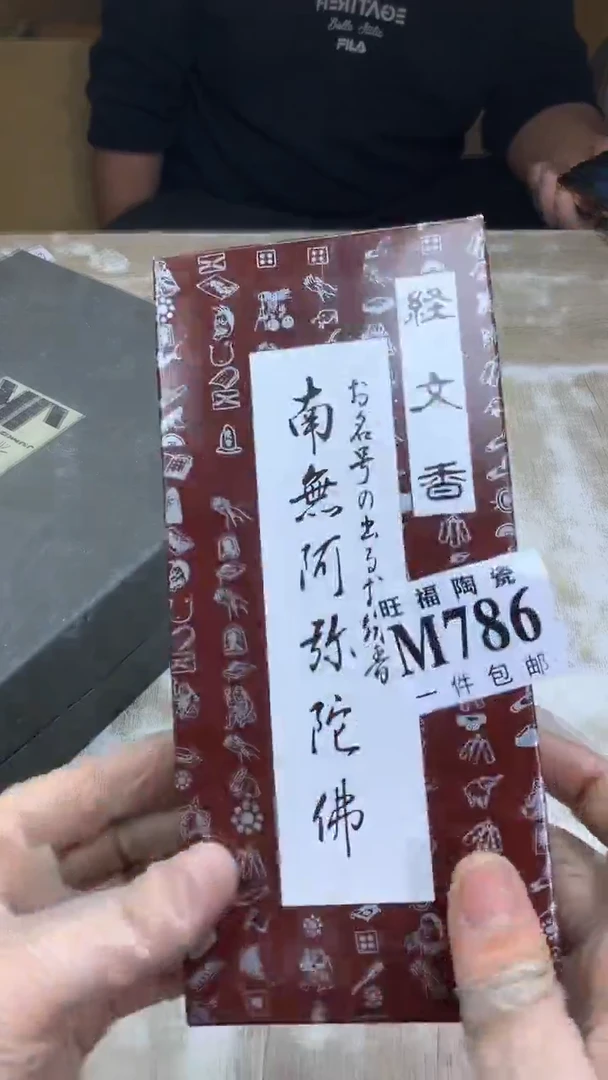 HERITAGE
Bello Stile
FILA
経文香
お名号の出るお線香
南無阿弥陀佛
旺福陶瓷
M786
一件包邮